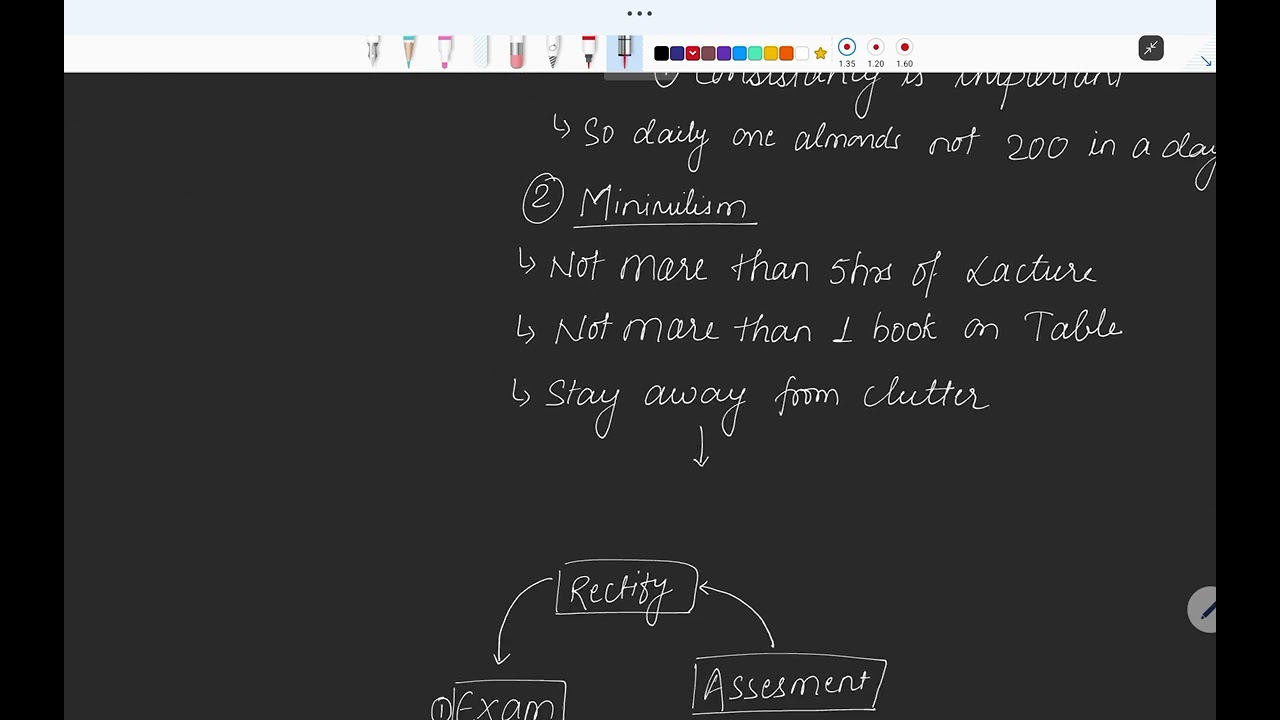 1.35 1.20 1.60
① Consistancy is important
↳ So daily one almonds not 200 in a day
② Minimilism
↳ Not more than 5hrs of Lacture
↳ Not more than 1 book on Table
↳ Stay away from clutter
Rectify
Assesment
① Exam